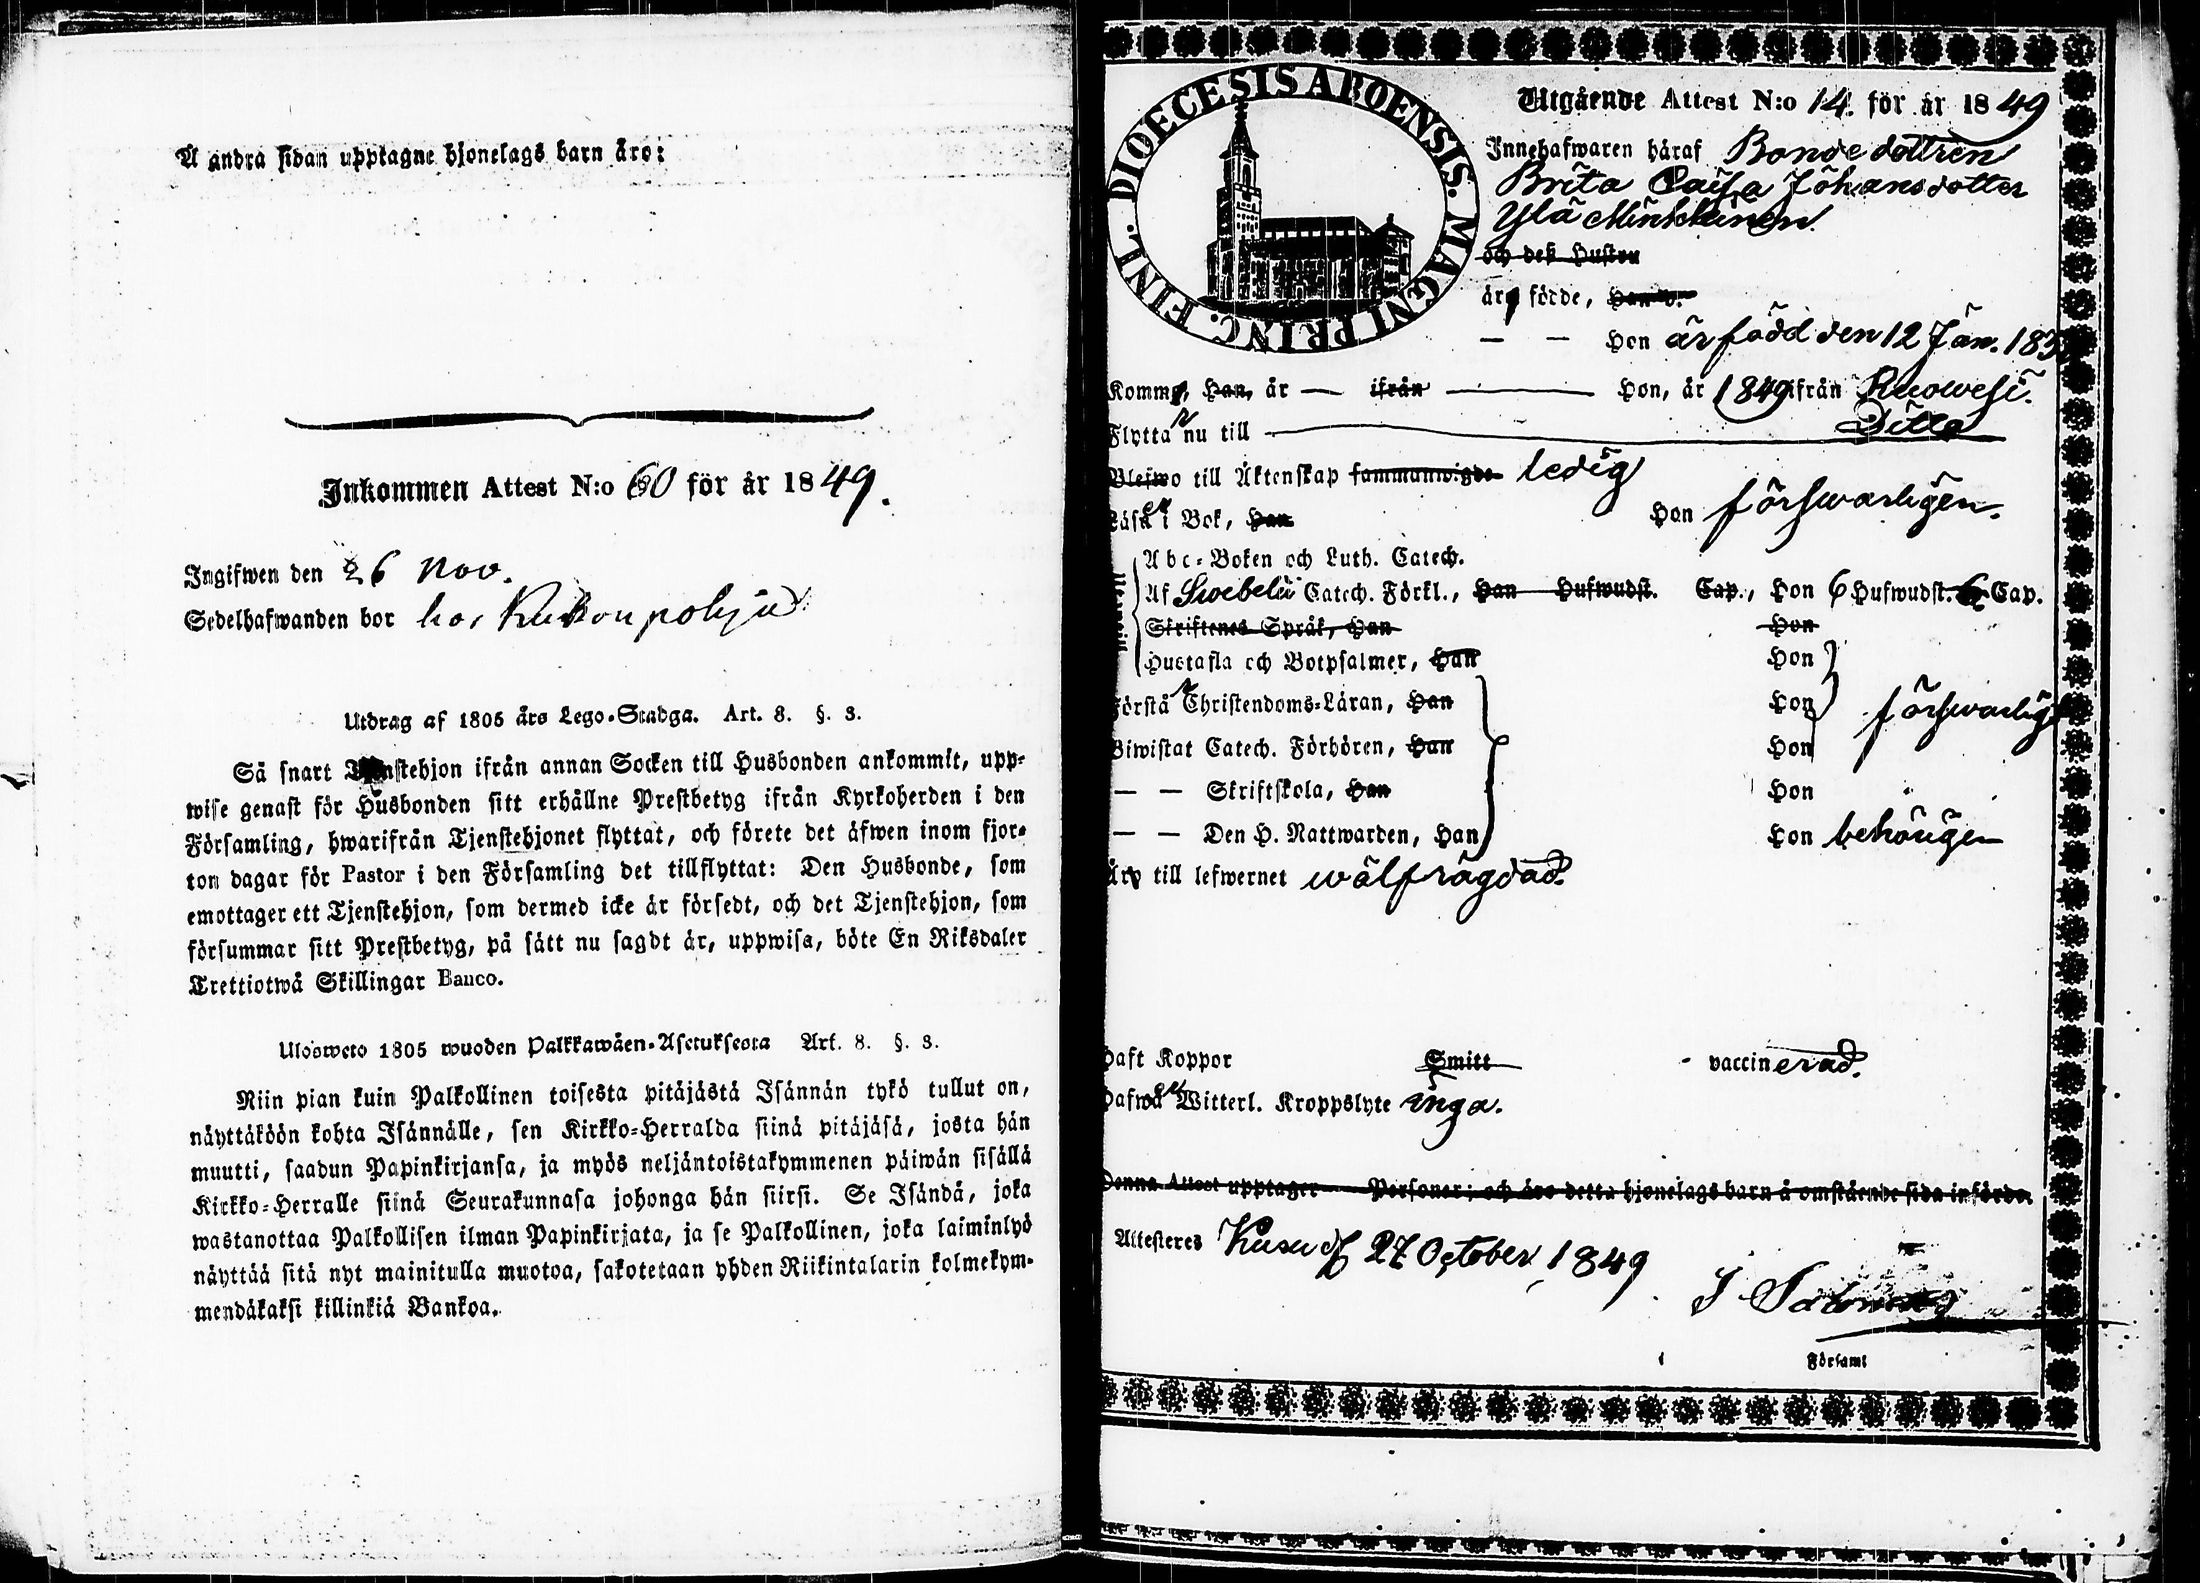 Å andra sidan upptagne hjonelags barn äro:
Inkommen Attest N:o 60 för år 1849.
Ingifwen den 26 Nov.
Sedelhafwanden bor hos
Utdrag af 1805 års Lego-Stadga. Art. 8. §. 3.
Så snart Tjenstehjon ifrån annan Socken till Husbonden ankommit, upp-
wise genast för Husbonden sitt erhållne Prestbetyg ifrån Kyrkoherden i den
Församling, hwarifrån Tjenstehjonet flyttat, och förete det äfwen inom fjor-
ton dagar för Pastor i den Församling det tillflyttat: Den Husbonde, som
emottager ett Tjenstehjon, som dermed icke är försedt, och det Tjenstehjon, som
försummar sitt Prestbetyg, på sätt nu sagdt är, uppwisa, böte En Riksdaler
Trettiotwå Skillingar Banco.
Ulosweto 1805 wuoden Palkkawäen-Asetuksesta Art. 8. §. 3.
Niin pian kuin Palkollinen toisesta pitäjästä Isännän tykö tullut on,
näyttäköön kohta Isännälle, sen Kirkko-Herralda siinä pitäjäsä, josta hän
muutti, saadun Papinkirjansa, ja myös neljäntoistakymmenen päiwän sisällä
Kirkko-Herralle siinä Seurakunnasa johonga hän siirsi. Se Isändä, joka
wastanottaa Palkollisen ilman Papinkirjata, ja se Palkollinen, joka laiminlyö
näyttää sitä nyt mainitulla muotoa, sakotetaan yhden Riikintalarin kolmekym-
mendäkaksi killinkiä Bankoa.
DIOECESIS ABOENSIS. MAGNI PRINC. FINL.
Utgående Attest N:o 14. för år 1849
Innehafwaren häraf Bondedottren
Brita Caisa Johansdotter
Ylä Minkkinen
och deß Hustru
äro förde, Han
— — Hon är född den 12 Jan. 183
Komm, Han, år — ifrån — Hon, år 1849 ifrån Ruowesi.
Flytta nu till — Ditto
Blefwo till Äktenskap sammanwigde ledig
Läsa i Bok, Han Hon förswarligen.
Abc-Boken och Luth. Catech.
Af Swebelii Catech. Förkl., Han Hufwudst. Cap., Hon 6 Hufwudst. 6 Cap.
Skriftenes Språk, Han Hon
Hustafla och Botpsalmer, Han Hon
Förstå Christendoms-Läran, Han Hon förswarlig
Biwistat Catech. Förhören, Han Hon
— — Skriftskola, Han Hon "
— — Den H. Nattwarden, Han Hon behörigen
Äro till lefwernet wälfrägdad.
Haft Koppor Smitt vaccinerad.
Hafwa Witterl. Kroppslyte inga.
Denna Attest upptager — Personer; och äro detta hjonelags barn å omstående sida införde.
Attesteres Kuru d. 27 October 1849
Församl